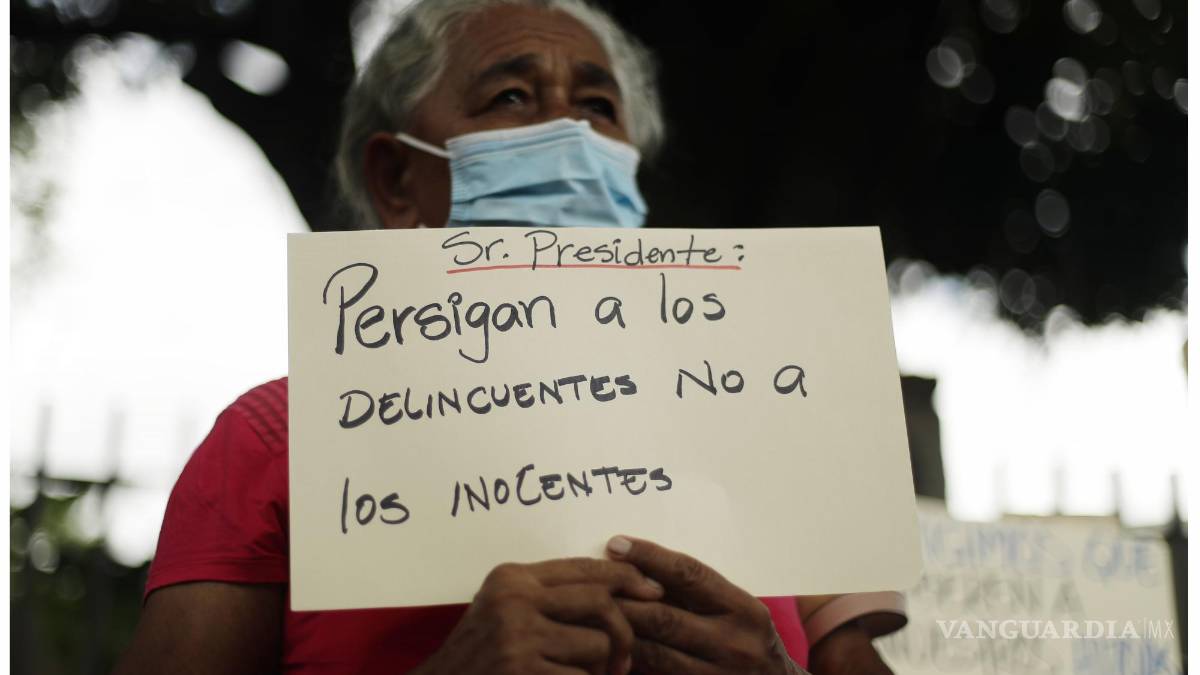 Sr. Presidente:
Persigan a los
DELINCUENTES NO a
los INOCENTES
QUE
VANGUARDIA|MX